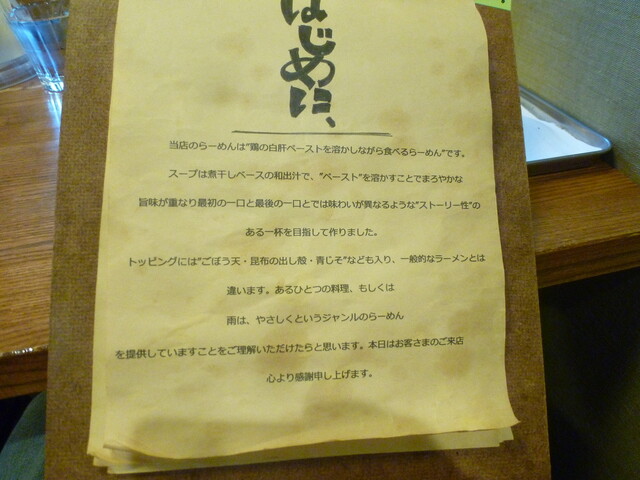 はじめに、
当店のらーめんは"鶏の白肝ペーストを溶かしながら食べるらーめん"です。
スープは煮干しベースの和出汁で、"ペースト"を溶かすことでまろやかな
旨味が重なり最初の一口と最後の一口とでは味わいが異なるような"ストーリー性"の
ある一杯を目指して作りました。
トッピングには"ごぼう天・昆布の出し殻・青じそ"なども入り、一般的なラーメンとは
違います。あるひとつの料理、もしくは
雨は、やさしくというジャンルのらーめん
を提供していますことをご理解いただけたらと思います。本日はお客さまのご来店
心より感謝申し上げます。